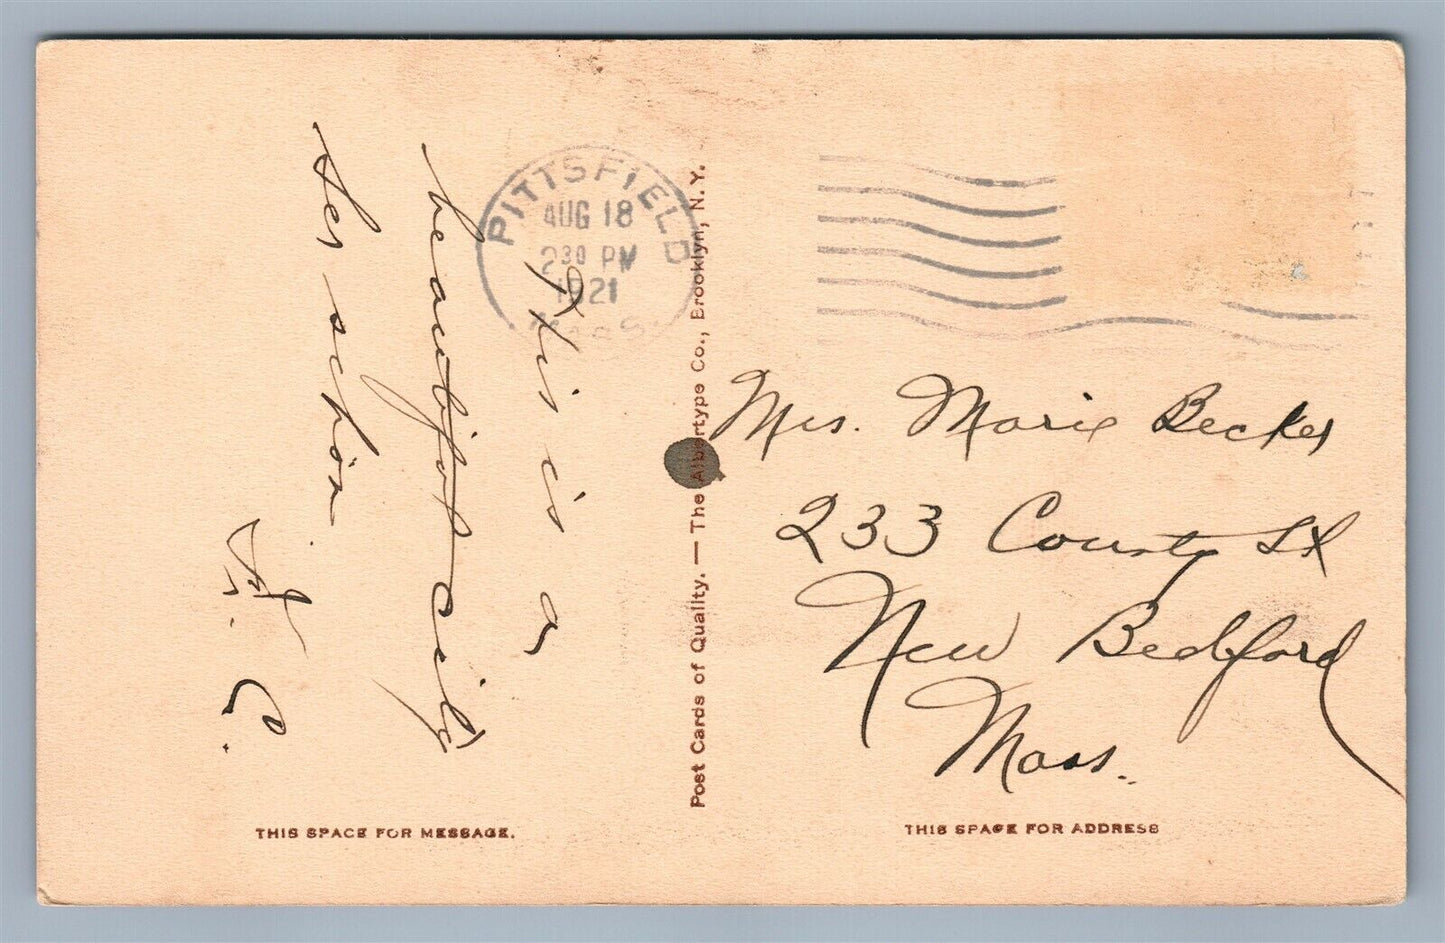 PITTSFIELD
AUG 18
2 30 PM
1921
MASS.
This is a
beautiful city
Ser schön
A. C.
Post Cards of Quality. — The Albertype Co., Brooklyn, N. Y.
Mrs. Marie Becker
233 County St
New Bedford
Mass.
THIS SPACE FOR MESSAGE.
THIS SPACE FOR ADDRESS